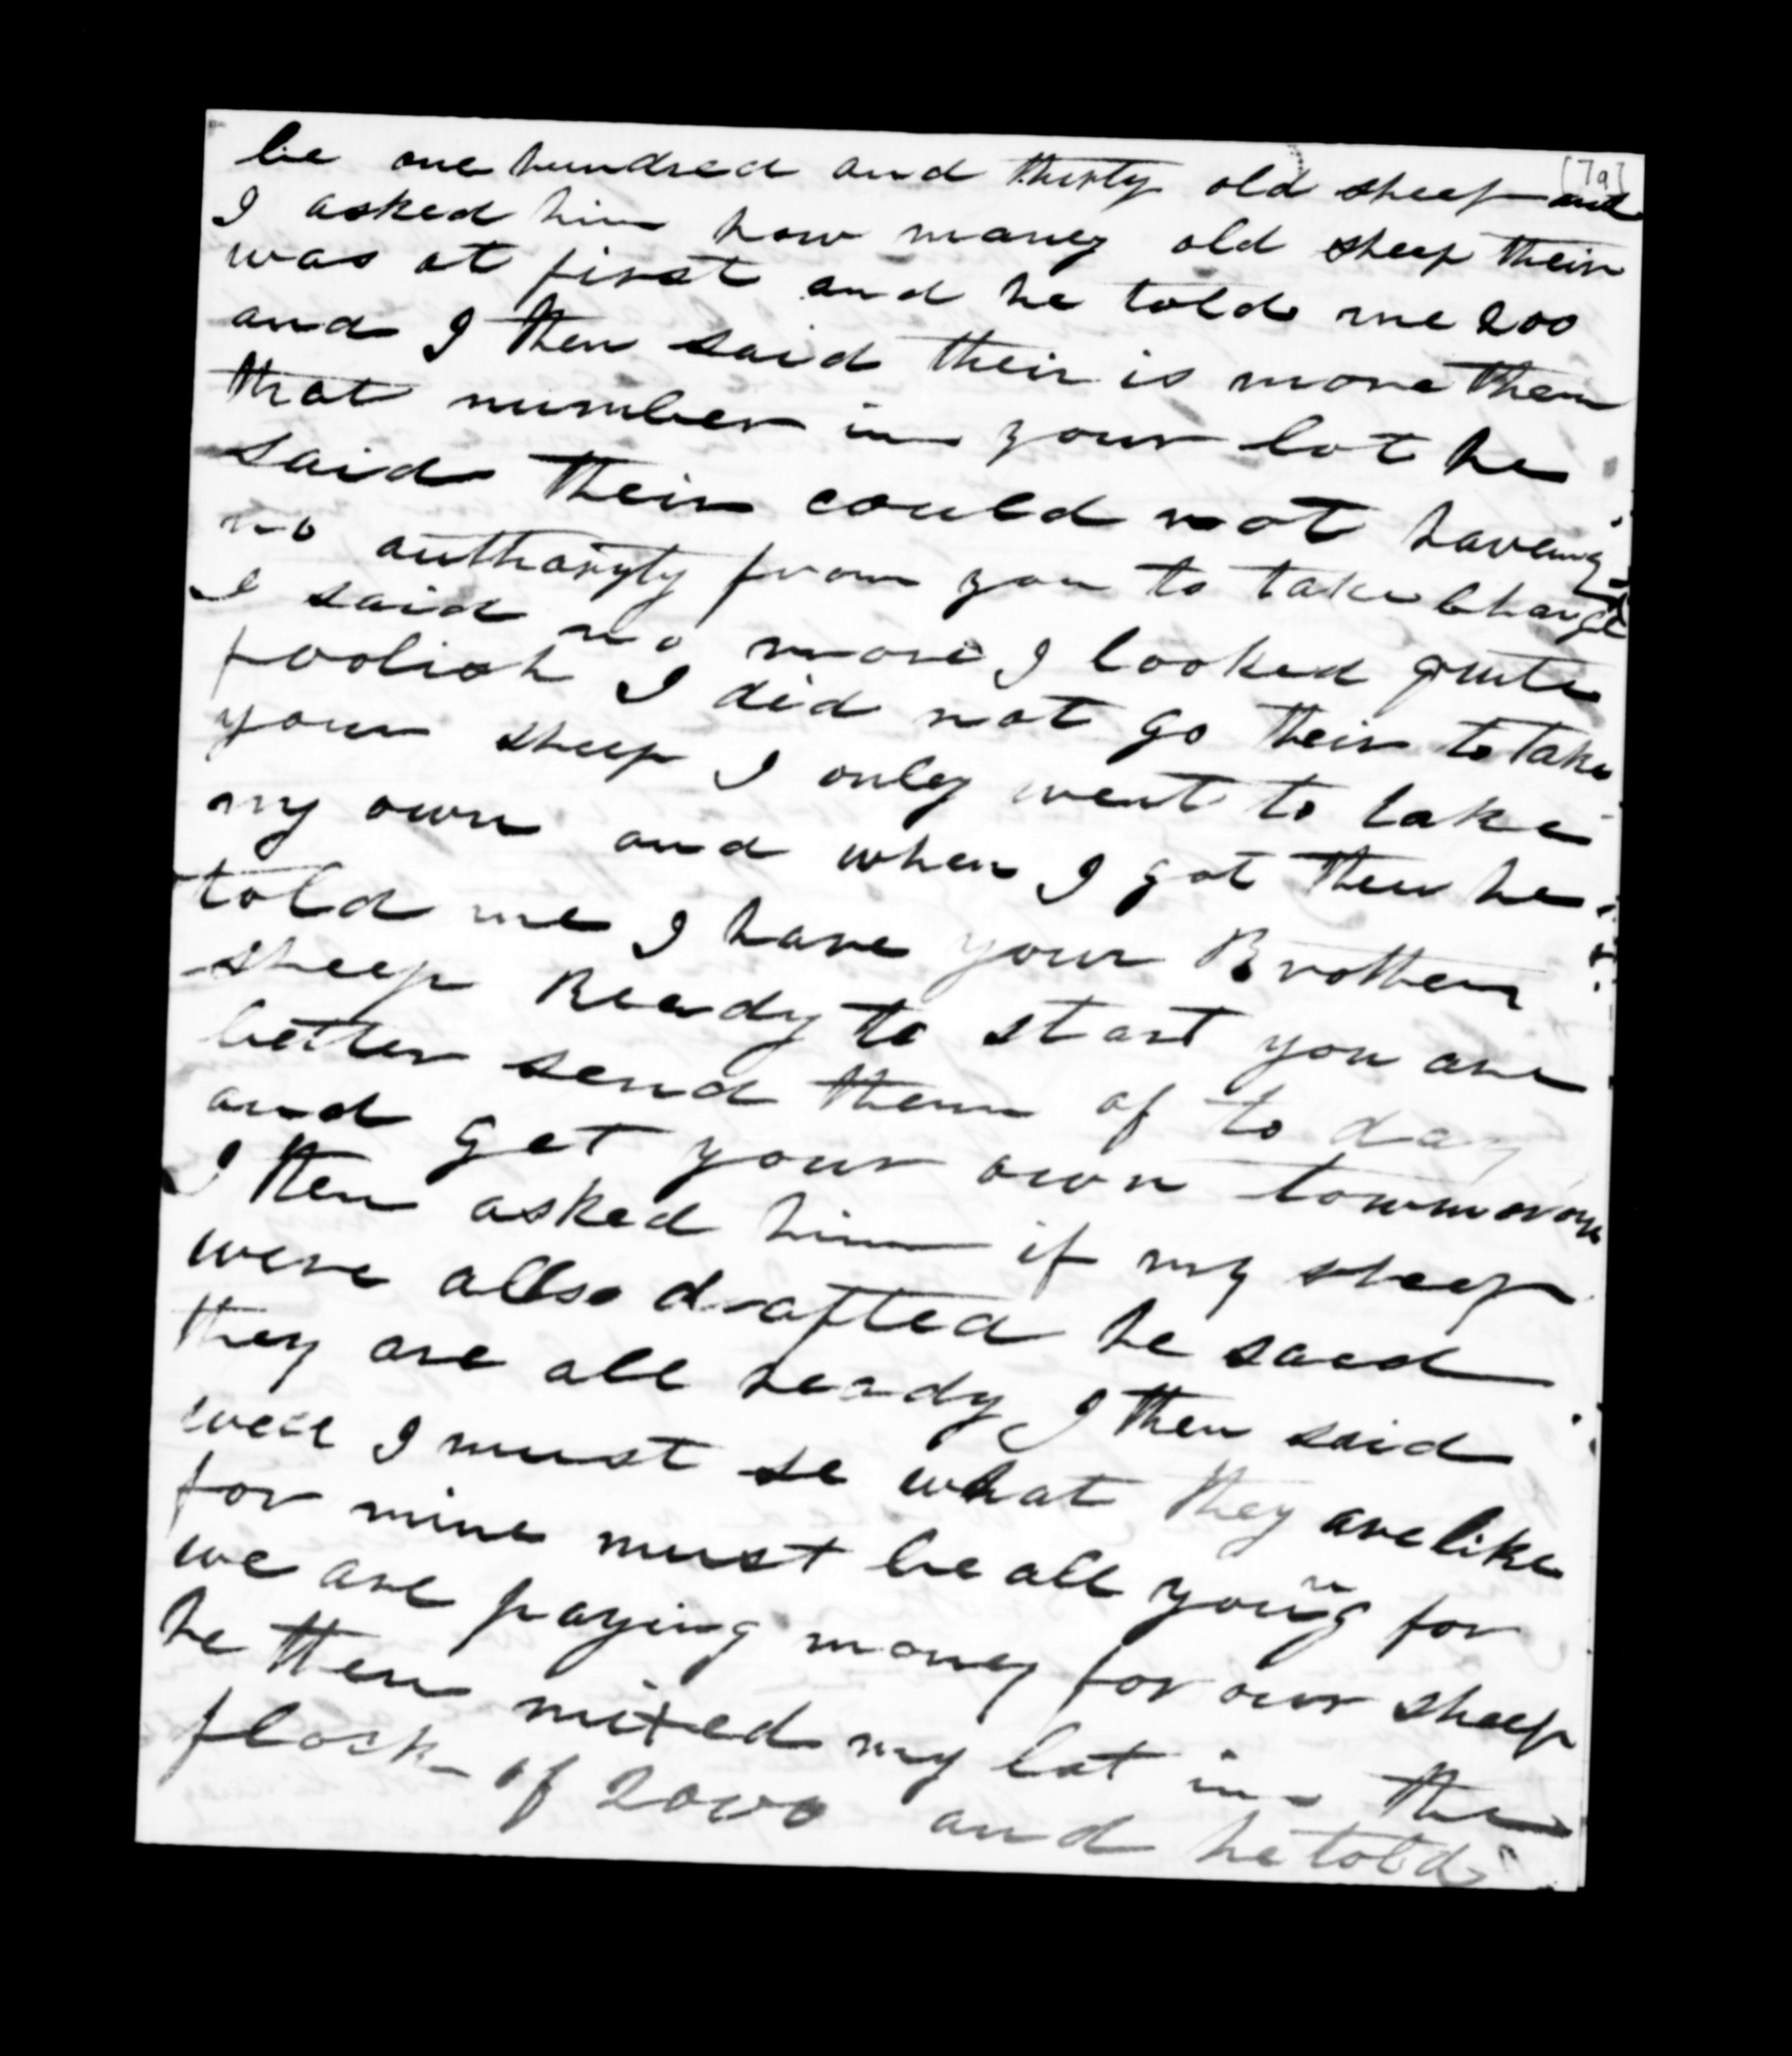 [7a]
be one hundred and thirty old sheep and
I asked him how maney old sheep their
was at first and he told me 200
and I then said their is more then
that number in your lot he
said their could not haveing
no authoryty from you to take charge
I said no more I looked quite
foolish I did not go their to take
your sheep I only went to take
my own and when I got their he
told me I have your Brothers
sheep Ready to start you are
better send them of to day
and get your own tommorow
I then asked him if my sheep
were allso drafted he saed
they are all ready I then said
well I must se what they are like
for mine must be all young for
we are paying money for our sheep
he then mixed my lot in the
flock of 2000 and he told